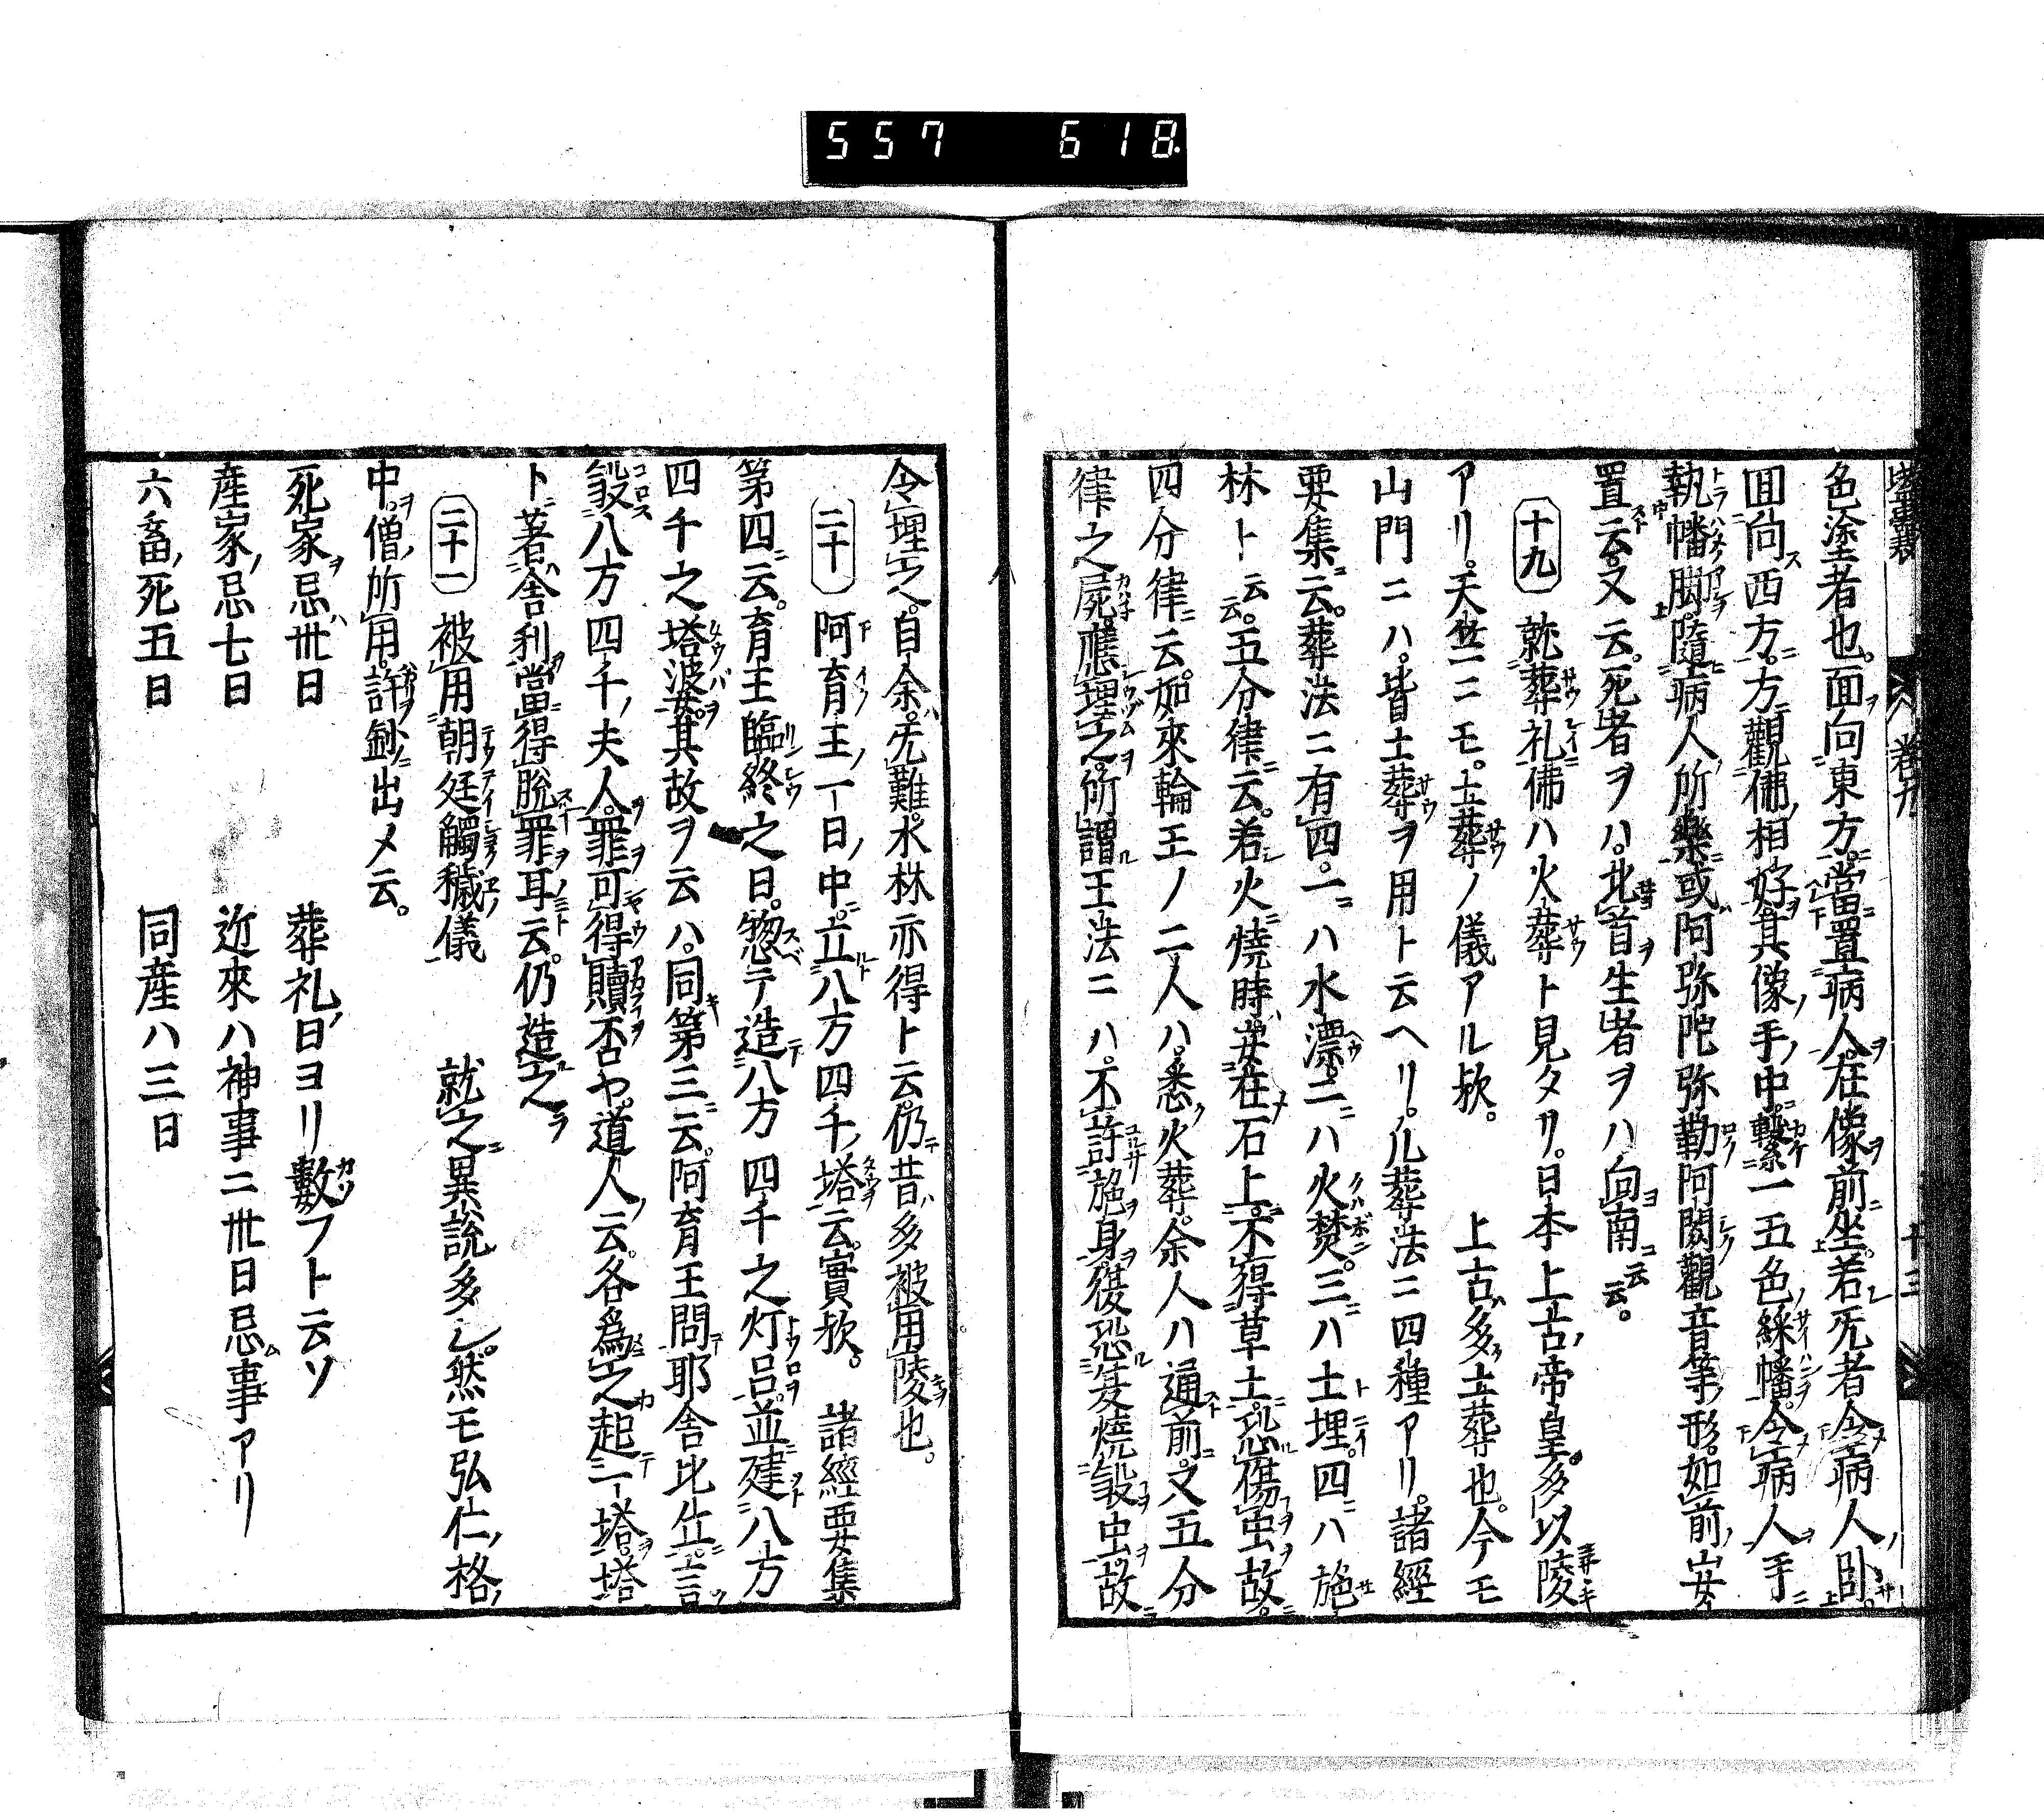 557 618
卷九 十三
色塗者也。面向東方。當置病人。在像前坐。若死者令病人臥。
面向西方。方觀佛相好。其像手中。繫一五色綵幡。令病人手
執幡脚。隨病人所樂。或阿弥陀弥勒阿閦觀音等形。如前安
置云。又云。死者ヲハ。北首生者ヲハ向南云云。
十九 就葬礼佛ハ火葬ト見タリ。日本上古帝皇。多以陵
アリ。天竺ニモ。土葬ノ儀アル欤。 上古多土葬也。今モ
山門ニハ。皆土葬ヲ用ト云ヘリ。凡葬法ニ四種アリ。諸經
要集云。葬法ニ有四。一ハ水漂。二ハ火焚。三ハ土埋。四ハ施
林ト云云。五分律云。若火燒時。安在石上。不得草土。恐傷虫故。
四分律云。如來輪王ノ二人ハ。悉火葬。余人ハ通前。又五分
律之屍。應埋之。所謂王法ニハ。不許施身。復恐歬燒殺虫。故
令埋之。自余。先難。水林亦得ト云。仍昔多被用陵也。
二十 阿育王一日中。立八方四千塔云。實欤。 諸經要集
第四云。育王臨終之日。惣テ造八方四千之灯呂。並建八方
四千之塔婆。其故ヲ云ハ。同第三云。阿育王問耶舍比丘言
殺八方四千夫人。罪可得贖否ヤ。道人云。各爲之起一塔。塔
下著舍利。當得脱罪耳云。仍造之
二十一 被用朝廷觸穢儀 就之異說多し。然モ弘仁格
中。僧所用。許鈔出メ云。
死家忌卅日 葬礼日ヨリ數フト云ソ
產家忌七日 近來ハ神事ニ卅日忌事アリ
六畜死五日 同産ハ三日